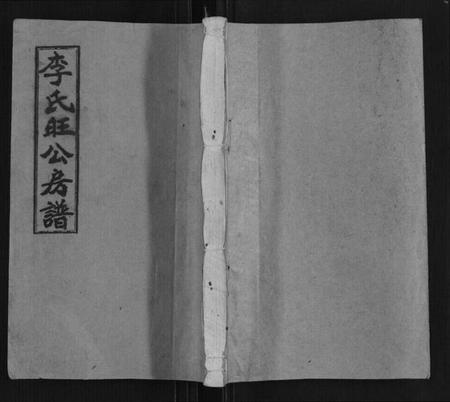 李氏旺公房譜